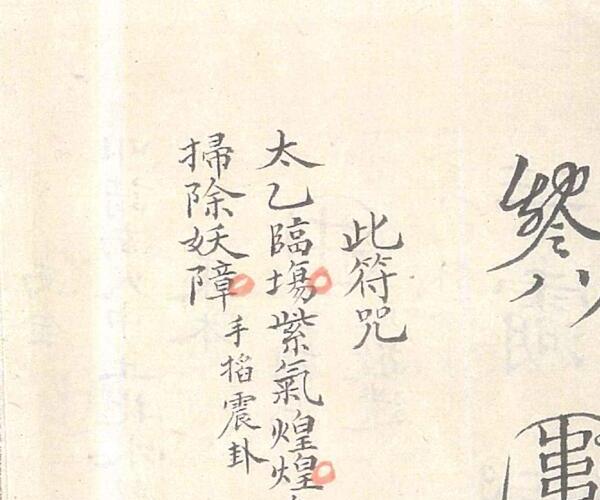 此符咒
太乙臨塲紫氣煌煌
掃除妖障
手搯震卦